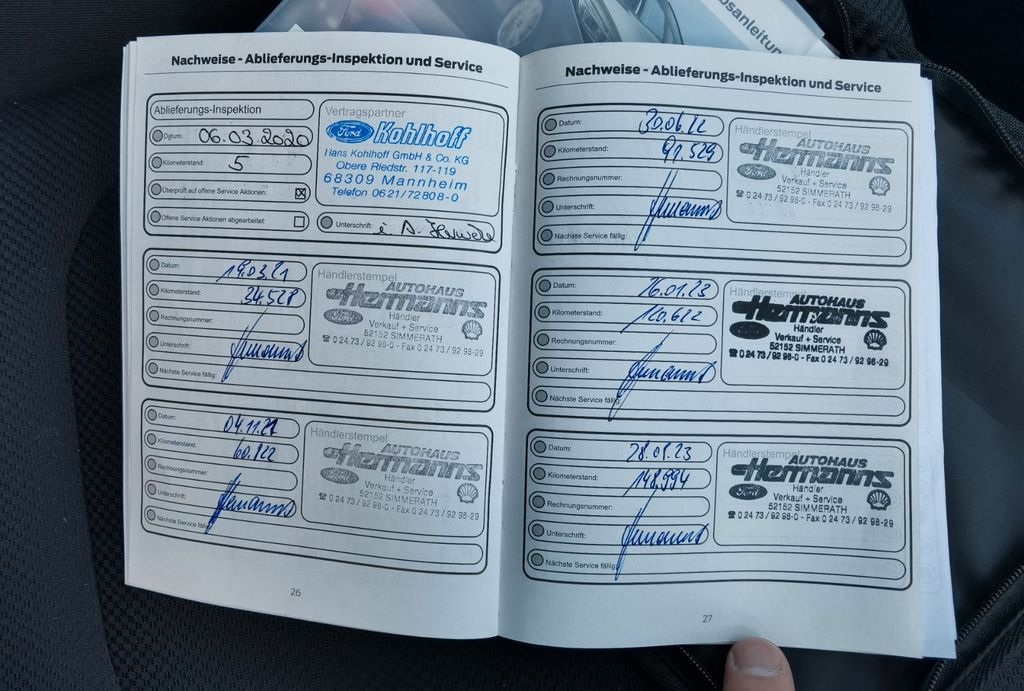 bsanleitun
Nachweise - Ablieferungs-Inspektion und Service
Ablieferungs-Inspektion
Datum: 06.03.2020
Kilometerstand: 5
Überprüft auf offene Service Aktionen: ☒
Offene Service Aktionen abgearbeitet: ☐
Vertragspartner
Ford Kohlhoff
Hans Kohlhoff GmbH & Co. KG
Obere Riedstr. 117-119
68309 Mannheim
Telefon 0621/72808-0
Unterschrift: i. A.
Datum: 19.03.21
Kilometerstand: 34.528
Rechnungsnummer:
Unterschrift:
Nächste Service fällig:
Händlerstempel
AUTOHAUS
Hermanns
Ford Händler
Verkauf + Service
52152 SIMMERATH
☎ 0 24 73 / 92 98-0 - Fax 0 24 73 / 92 98-29
Datum: 04.11.21
Kilometerstand: 60.122
Rechnungsnummer:
Unterschrift:
Nächste Service fällig:
Händlerstempel
AUTOHAUS
Hermanns
Ford Händler
Verkauf + Service
52152 SIMMERATH
☎ 0 24 73 / 92 98-0 - Fax 0 24 73 / 92 98-29
26
Nachweise - Ablieferungs-Inspektion und Service
Datum: 30.06.22
Kilometerstand: 91.529
Rechnungsnummer:
Unterschrift:
Nächste Service fällig:
Händlerstempel
AUTOHAUS
Hermanns
Ford Händler
Verkauf + Service
52152 SIMMERATH
☎ 0 24 73 / 92 98-0 - Fax 0 24 73 / 92 98-29
Datum: 16.01.23
Kilometerstand: 120.622
Rechnungsnummer:
Unterschrift:
Nächste Service fällig:
Händlerstempel
AUTOHAUS
Hermanns
Ford Händler
Verkauf + Service
52152 SIMMERATH
☎ 0 24 73 / 92 98-0 - Fax 0 24 73 / 92 98-29
Datum:
Kilometerstand: 148.994
Rechnungsnummer:
Unterschrift:
Nächste Service fällig:
Händlerstempel
AUTOHAUS
Hermanns
Ford Händler
Verkauf + Service
52152 SIMMERATH
☎ 0 24 73 / 92 98-0 - Fax 0 24 73 / 92 98-29
27